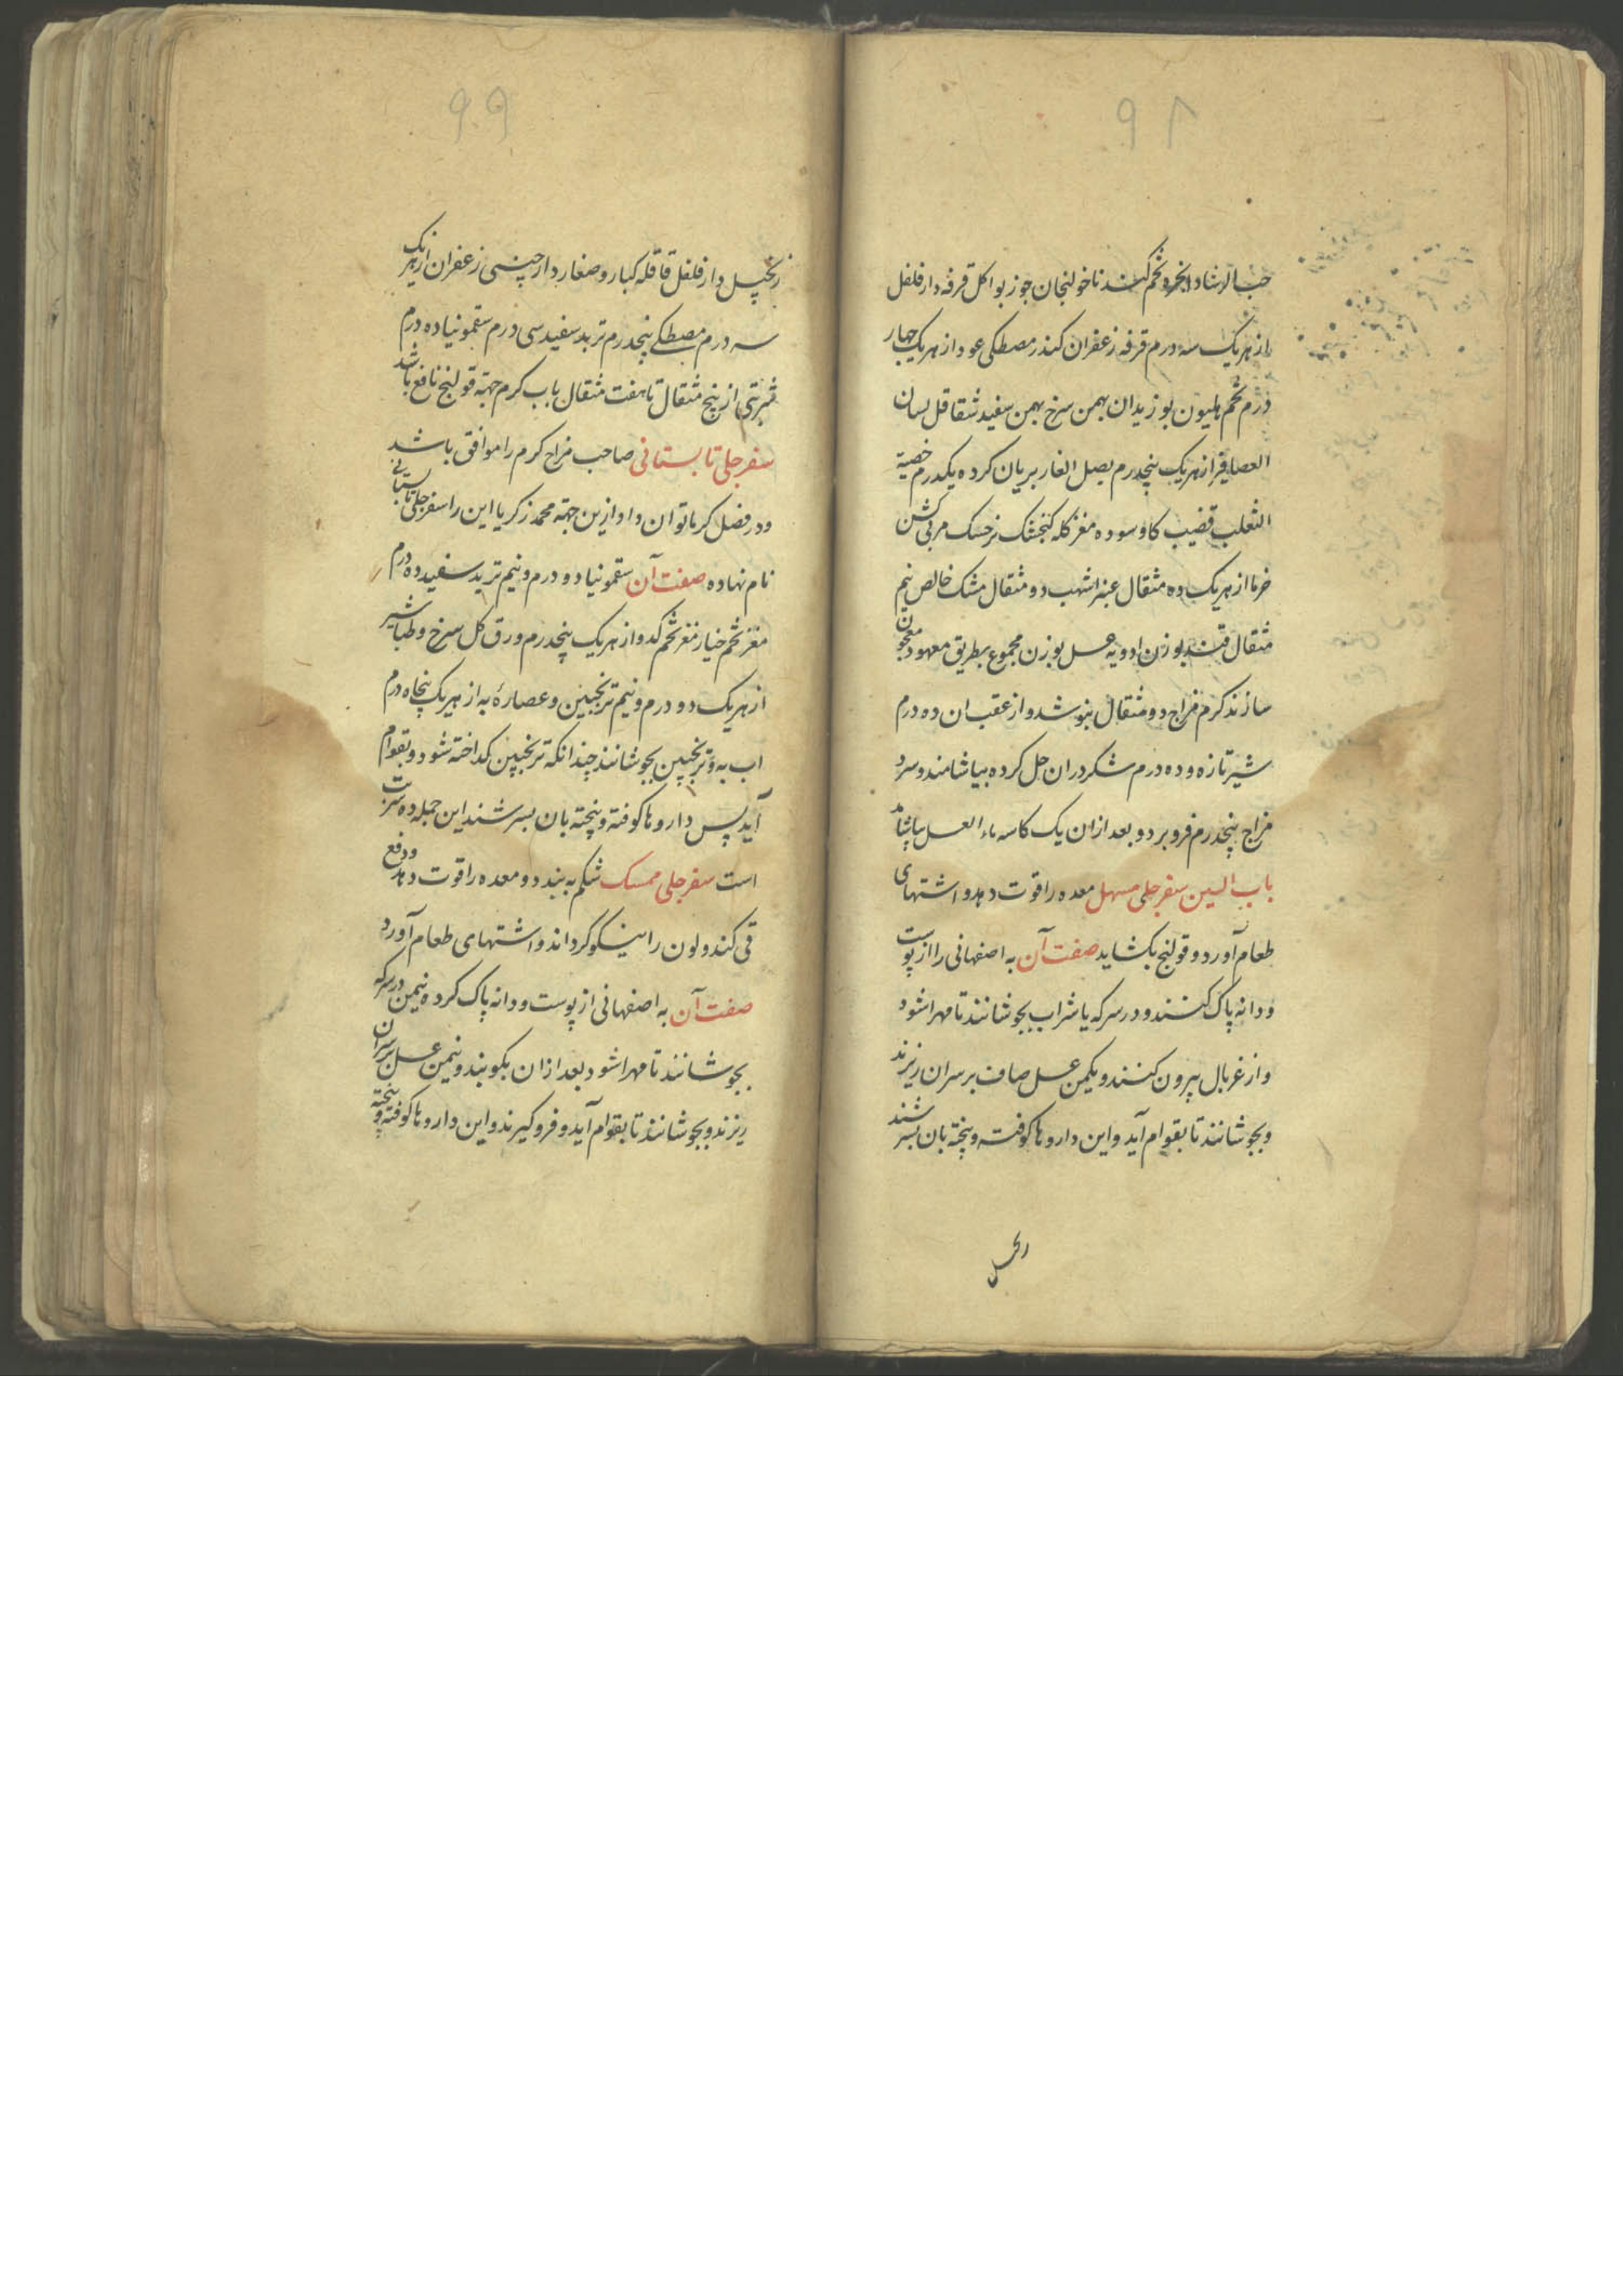 ۹۸
حب الرشاد انجره تخم کندنا خولنجان جوز بوا کل قرفه دارفلفل
از هریک سه درم قرفه زعفران کندر مصطکی عود از هریک چهار
درم تخم هلیون بوزیدان بهمن سرخ بهمن سفید شقاقل لسان
العصافیر از هریک پنجدرم بصل الغار بریان کرده یکدرم خصیة
الثعلب قضیب کاو سوده مغز کله کنجشک نر خسک مربی کشن
خرما از هریک ده مثقال عنبر اشهب دو مثقال مشک خالص نیم
مثقال قند بوزن ادویه عسل بوزن مجموع بطریق معهود معجون
سازند کرم مزاج دو مثقال بنوشد و از عقب ان ده درم
شیر تازه و ده درم شکر دران حل کرده بیاشامند و سرد
مزاج پنجدرم فرو برد و بعد ازان یک کاسه ماء العسل بیاشامد
باب السین سفرجلی مسهل معده را قوت دهد و اشتهای
طعام آورد و قولنج بکشاید صفت آن به اصفهانی را از پوست
و دانه پاک کنند و در سرکه یا شراب بجوشانند تا مهرا شود
و از غربال بیرون کنند و یکمن عسل صاف بر سر ان ریزند
و بجوشانند تا بقوام آید و این داروها کوفته و بیخته بان بسرشند
۹۹
زنجبیل دارفلفل قاقله کبار و صغار دارچینی زعفران از هریک
سه درم مصطکی پنجدرم تربد سفید سی درم سقمونیا ده درم
شربتی از پنج مثقال تا هفت مثقال باب کرم جهته قولنج نافع باشد
سفرجلی تابستانی صاحب مزاج کرم را موافق باشد
و در فصل کرما توان داد ازین جهته محمد زکریا این را سفرجلی تابستانی
نام نهاده صفت آن سقمونیا دو درم و نیم تربد سفید ده درم
مغز تخم خیار مغز تخم کدو از هریک پنجدرم ورق کل سرخ و طباشیر
از هریک دو درم و نیم ترنجبین و عصارهٔ به از هریک پنجاه درم
اب به و ترنجبین بجوشانند چندانکه ترنجبین کداخته شود و بقوام
آید پس داروها کوفته و بیخته بان بسرشند این جمله ده شربت
است سفرجلی ممسک شکم به بندد و معده را قوت دهد و دفع
قی کند و لون را نیکو کرداند و اشتهای طعام آورد
صفت آن به اصفهانی از پوست و دانه پاک کرده نیمن در سرکه
بجوشانند تا مهرا شود بعد ازان بکوبند و نیمن عسل بر سر ان
ریزند و بجوشانند تا بقوام آید و فرو کیرند و این داروها کوفته و بیخته